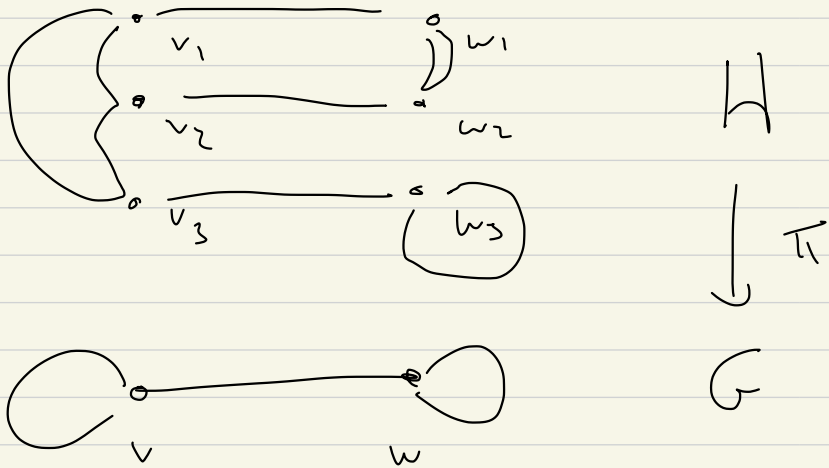 v1 w1
v2 w2
H
v3 w3
π
G
v w